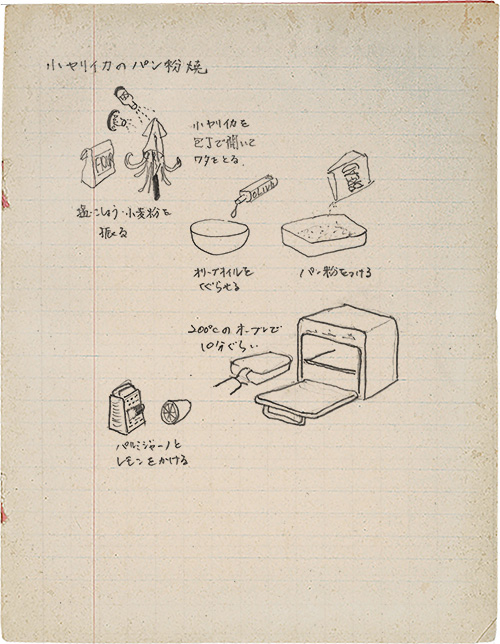 小ヤリイカのパン粉焼
小ヤリイカを
包丁で開いて
ワタをとる。
FLOUR
塩・こしょう・小麦粉を
振る
OLIVE
オリーブオイルを
くぐらせる
パン粉をつける
200℃のオーブンで
10分ぐらい
パルミジャーノと
レモンをかける